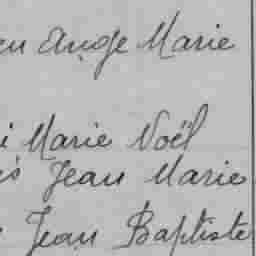 en Ange Marie
i Marie Noël
is Jean Marie
Jean Baptiste